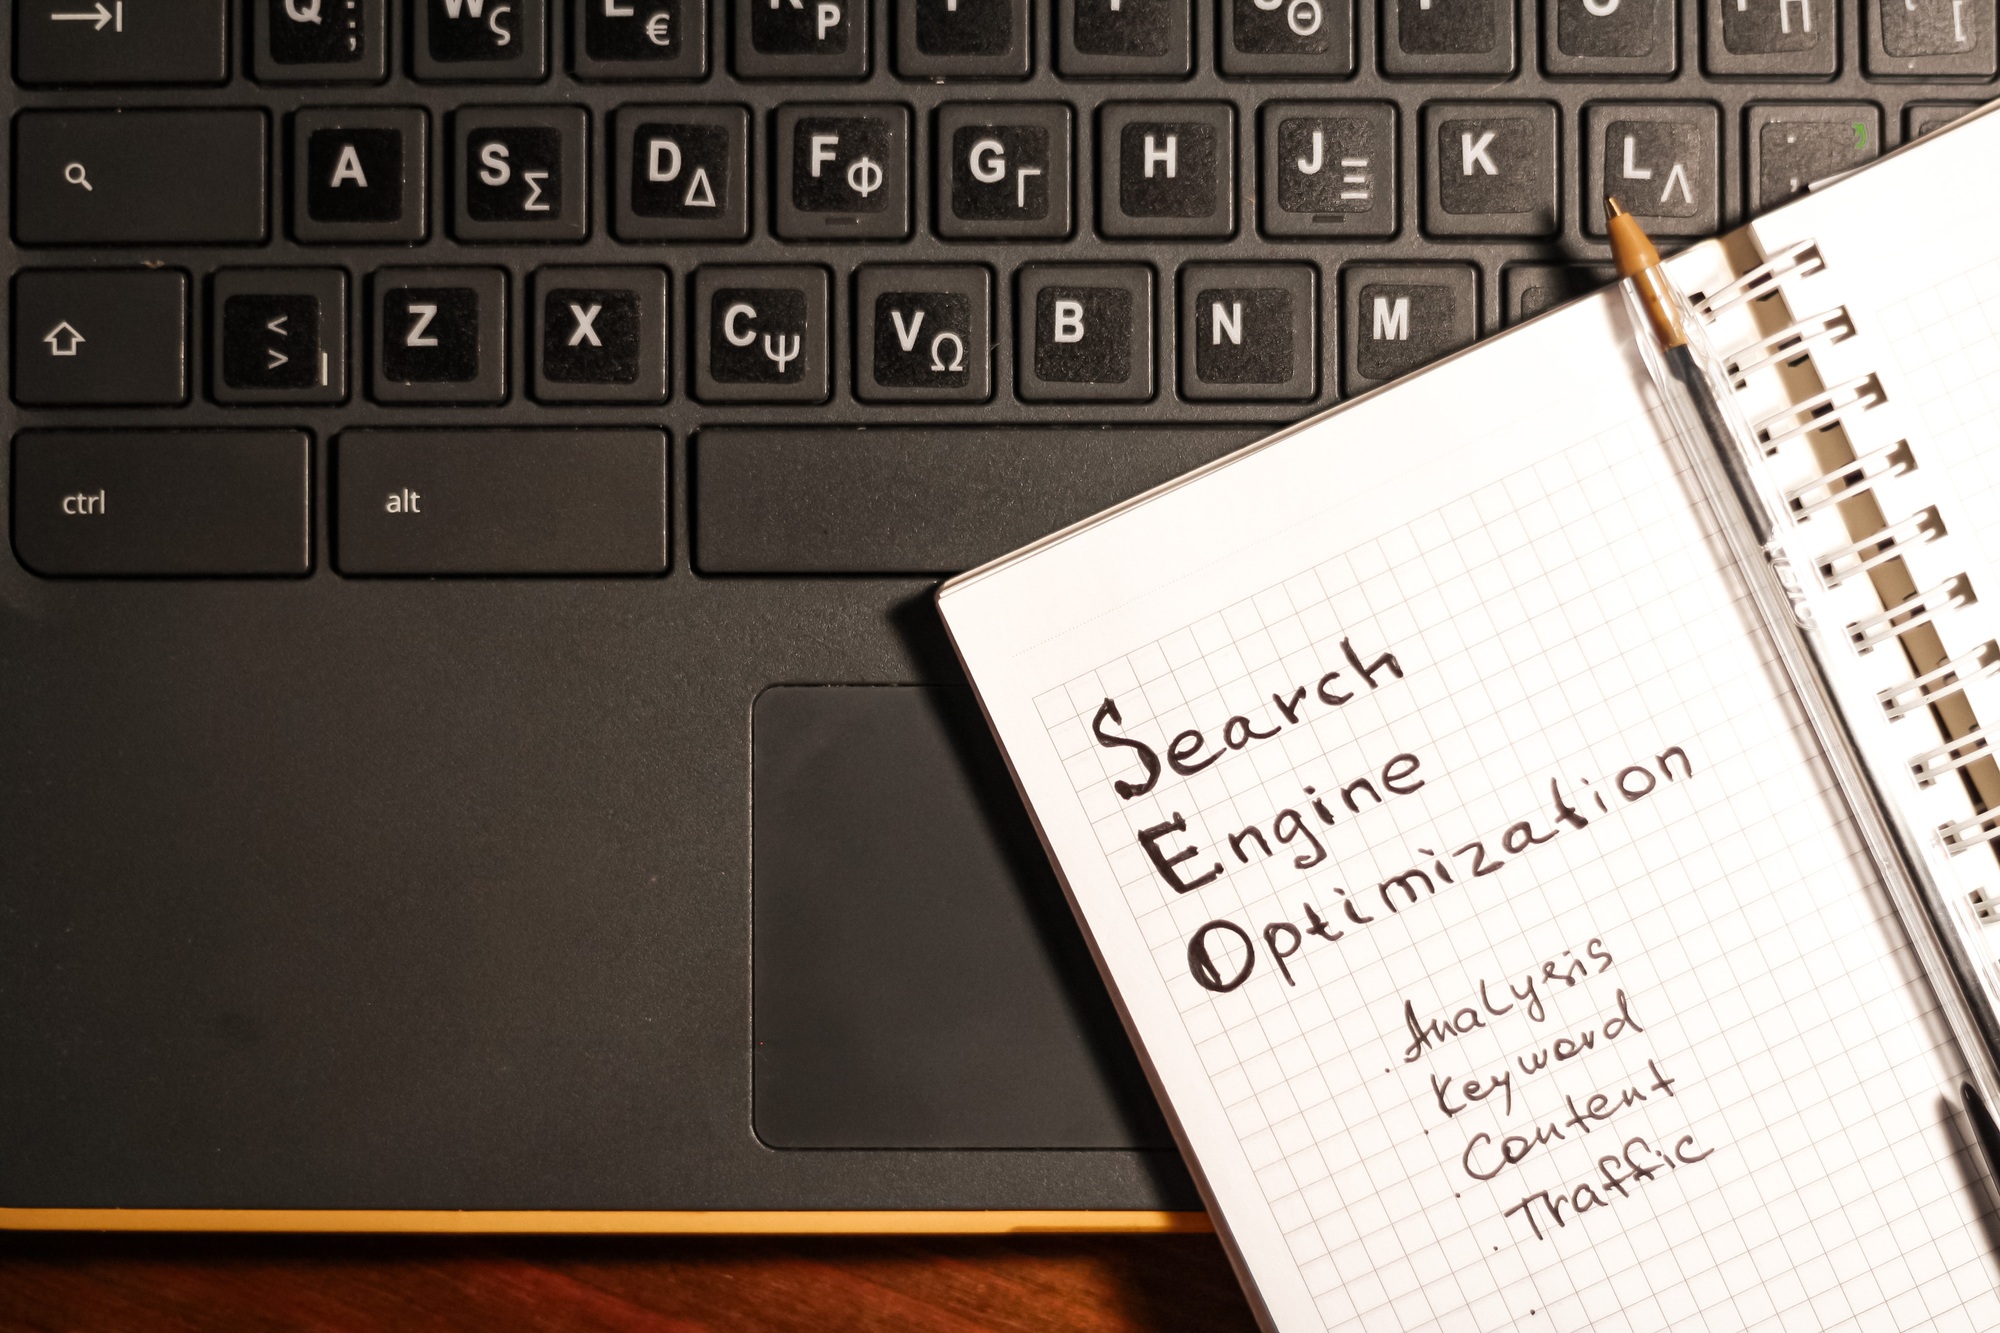 Q ;
W ς
E €
R Ρ
Θ
Π
[
A
S Σ
D Δ
F Φ
G Γ
H
J Ξ
K
L Λ
;
<
>
Z
X
C Ψ
V Ω
B
N
M
ctrl
alt
Search
Engine
Optimization
. Analysis
. Keyword
. Content
. Traffic
.